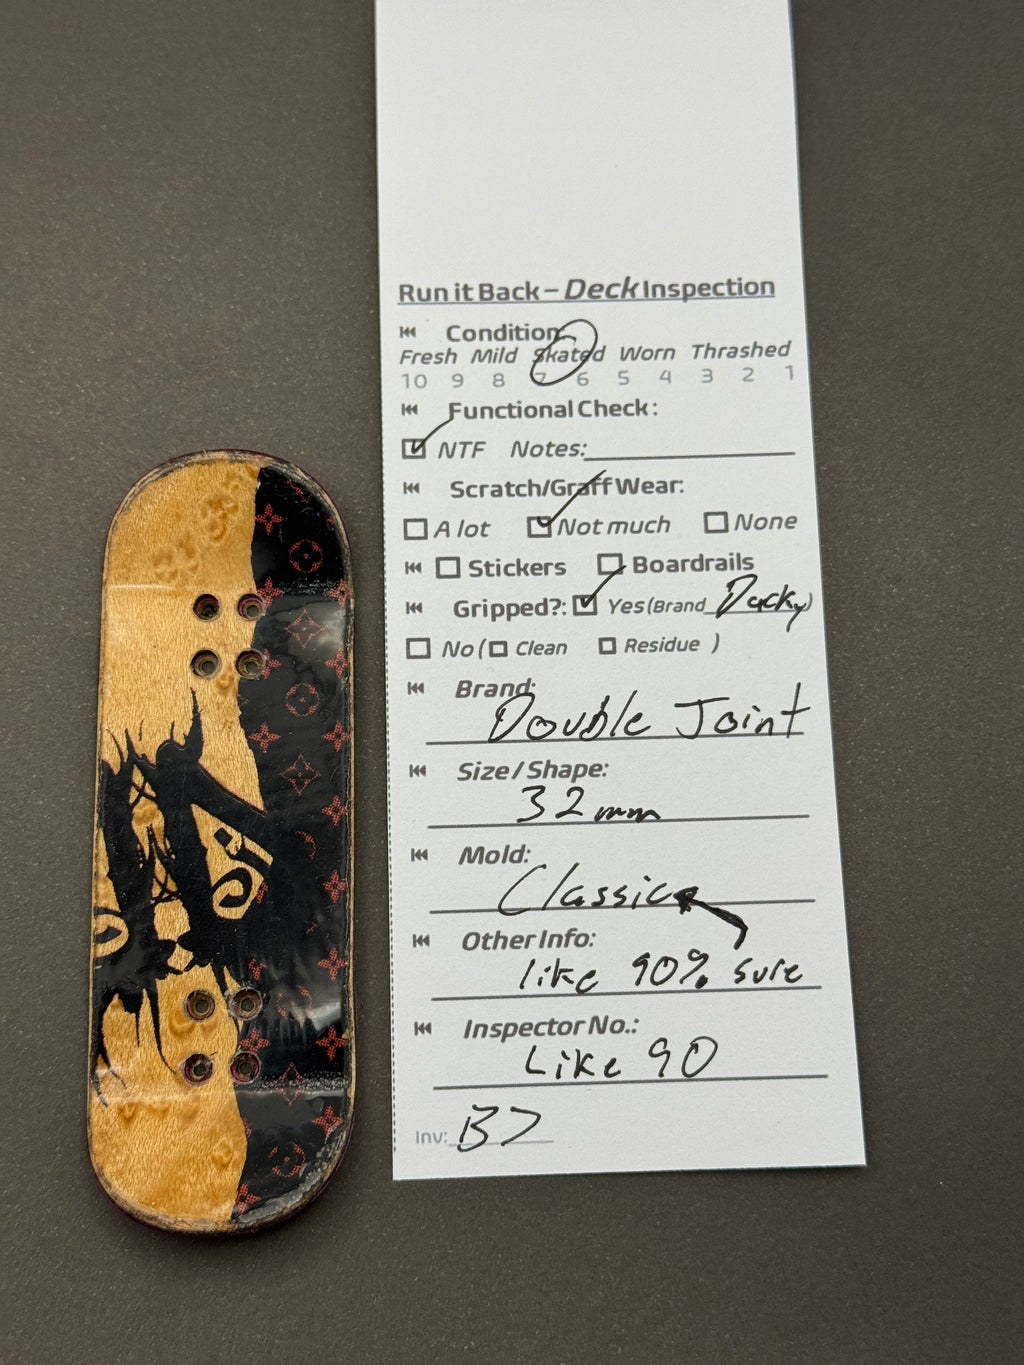 Run it Back – Deck Inspection
Condition:
Fresh Mild Skated Worn Thrashed
10 9 8 7 6 5 4 3 2 1
Functional Check:
NTF Notes:
Scratch/Graff Wear:
A lot Not much None
Stickers Boardrails
Gripped?: Yes (Brand Ducky)
No ( Clean Residue )
Brand:
Double Joint
Size / Shape:
32mm
Mold:
Classic
Other Info:
like 90% sure
Inspector No.:
Like 90
Inv: B7